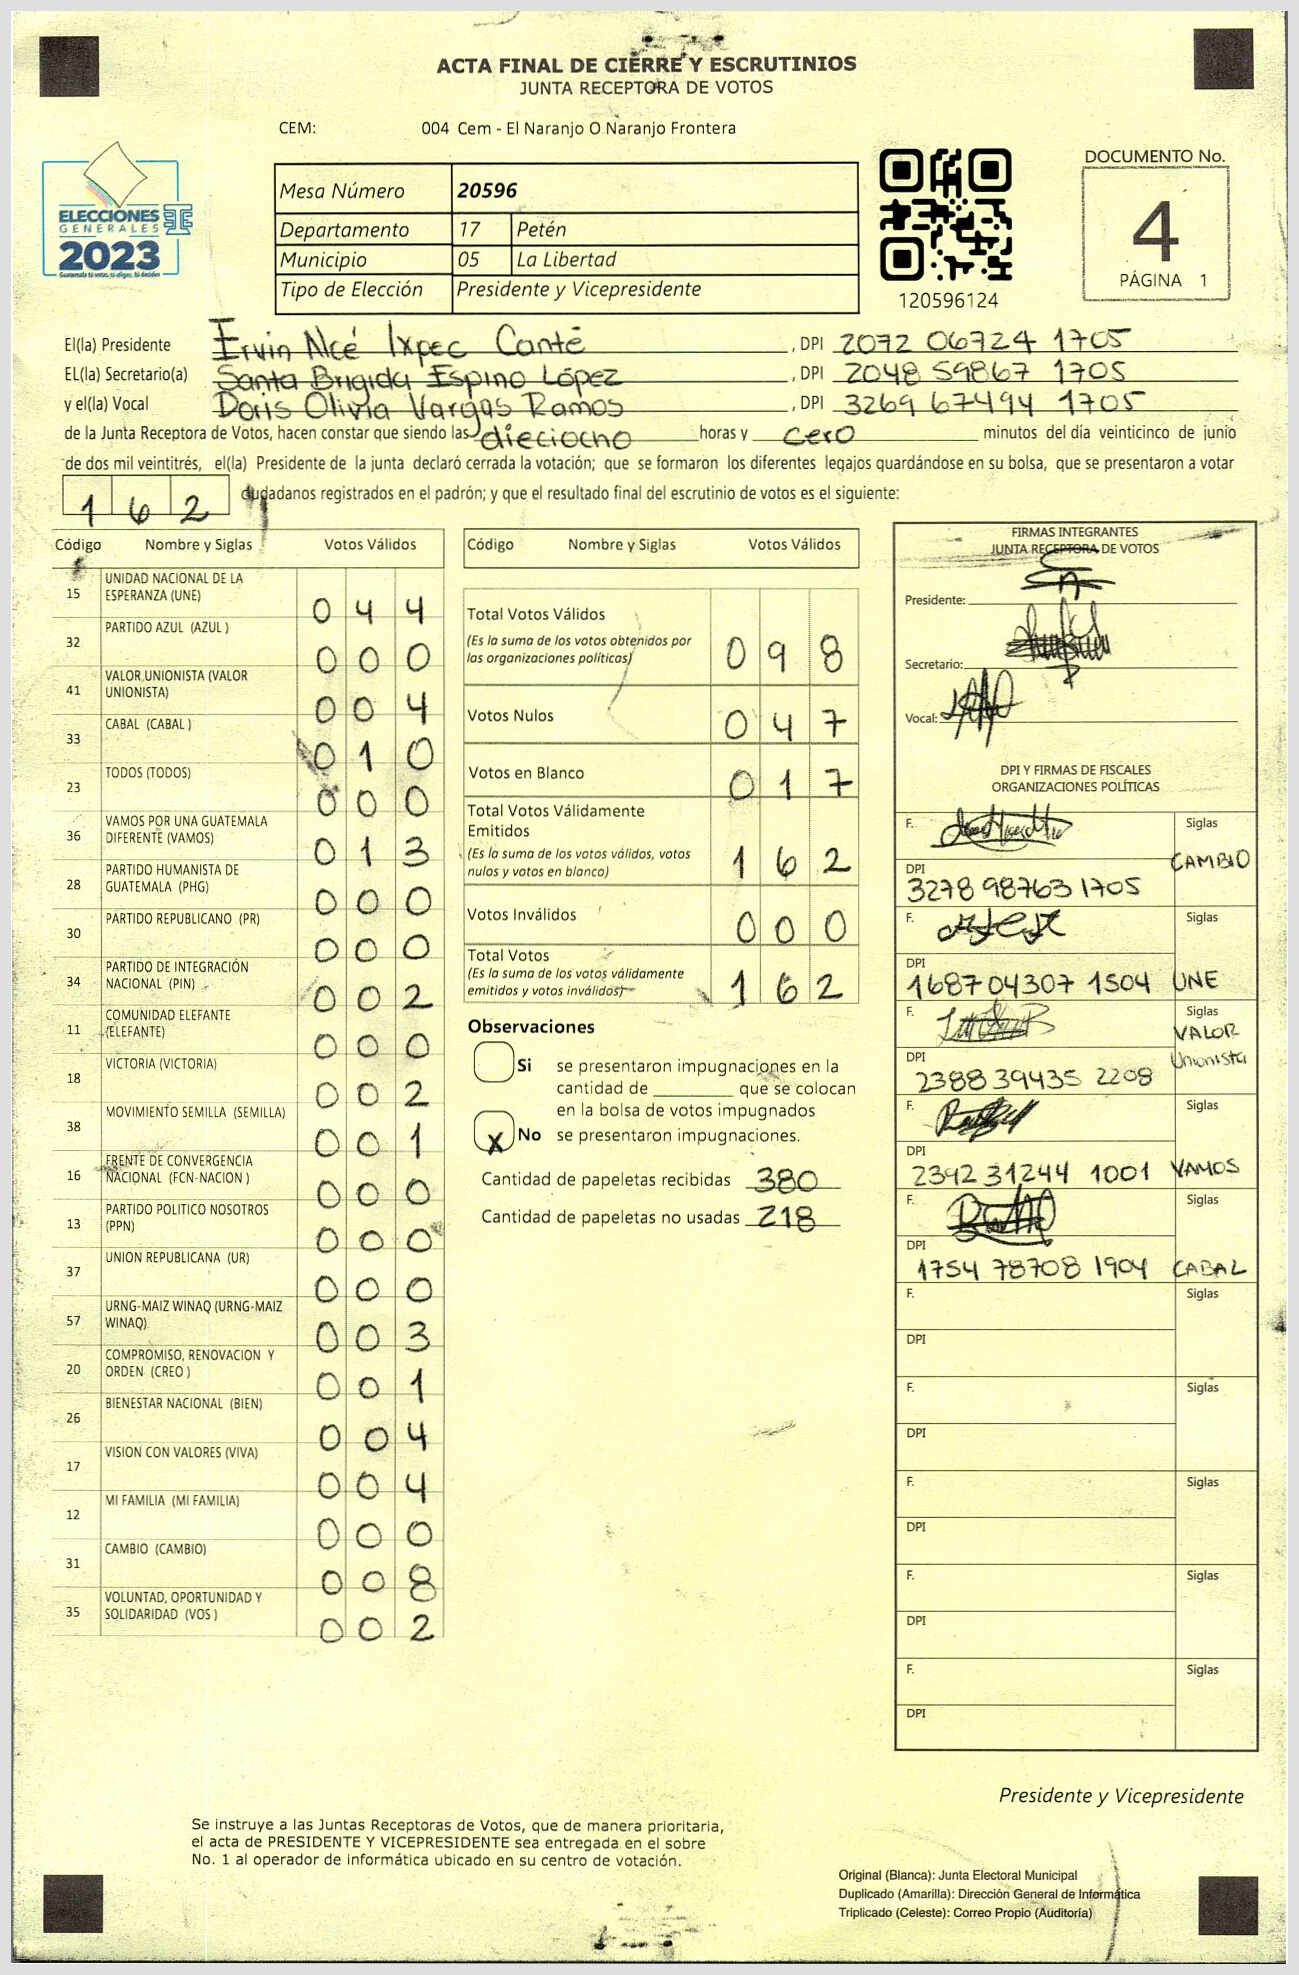 ACTA FINAL DE CIERRE Y ESCRUTINIOS
JUNTA RECEPTORA DE VOTOS
CEM: 004 Cem - El Naranjo O Naranjo Frontera
ELECCIONES
GENERALES
2023
Guatemala tú votas, tú eliges, tú decides
Mesa Número 20596
Departamento 17 Petén
Municipio 05 La Libertad
Tipo de Elección Presidente y Vicepresidente
120596124
DOCUMENTO No.
4
PÁGINA 1
El(la) Presidente Ervin Noé Ixpec Canté , DPI 2072 06724 1705
EL(la) Secretario(a) Santa Brigida Espino López , DPI 2048 59867 1705
y el(la) Vocal Doris Olivia Vargas Ramos , DPI 3269 67494 1705
de la Junta Receptora de Votos, hacen constar que siendo las dieciocho horas y cero minutos del día veinticinco de junio
de dos mil veintitrés, el(la) Presidente de la junta declaró cerrada la votación; que se formaron los diferentes legajos guardándose en su bolsa, que se presentaron a votar
162 ciudadanos registrados en el padrón; y que el resultado final del escrutinio de votos es el siguiente:
Código Nombre y Siglas Votos Válidos
15 UNIDAD NACIONAL DE LA ESPERANZA (UNE) 0 4 4
32 PARTIDO AZUL (AZUL ) 0 0 0
41 VALOR UNIONISTA (VALOR UNIONISTA) 0 0 4
33 CABAL (CABAL ) 0 1 0
23 TODOS (TODOS) 0 0 0
36 VAMOS POR UNA GUATEMALA DIFERENTE (VAMOS) 0 1 3
28 PARTIDO HUMANISTA DE GUATEMALA (PHG) 0 0 0
30 PARTIDO REPUBLICANO (PR) 0 0 0
34 PARTIDO DE INTEGRACIÓN NACIONAL (PIN) 0 0 2
11 COMUNIDAD ELEFANTE (ELEFANTE) 0 0 0
18 VICTORIA (VICTORIA) 0 0 2
38 MOVIMIENTO SEMILLA (SEMILLA) 0 0 1
16 FRENTE DE CONVERGENCIA NACIONAL (FCN-NACION ) 0 0 0
13 PARTIDO POLITICO NOSOTROS (PPN) 0 0 0
37 UNION REPUBLICANA (UR) 0 0 0
57 URNG-MAIZ WINAQ (URNG-MAIZ WINAQ) 0 0 3
20 COMPROMISO, RENOVACION Y ORDEN (CREO ) 0 0 1
26 BIENESTAR NACIONAL (BIEN) 0 0 4
17 VISION CON VALORES (VIVA) 0 0 4
12 MI FAMILIA (MI FAMILIA) 0 0 0
31 CAMBIO (CAMBIO) 0 0 8
35 VOLUNTAD, OPORTUNIDAD Y SOLIDARIDAD (VOS ) 0 0 2
Código Nombre y Siglas Votos Válidos
Total Votos Válidos
(Es la suma de los votos obtenidos por
las organizaciones políticas) 0 9 8
Votos Nulos 0 4 7
Votos en Blanco 0 1 7
Total Votos Válidamente
Emitidos
(Es la suma de los votos válidos, votos
nulos y votos en blanco) 1 6 2
Votos Inválidos 0 0 0
Total Votos
(Es la suma de los votos válidamente
emitidos y votos inválidos) 1 6 2
Observaciones
Si se presentaron impugnaciones en la
cantidad de ________ que se colocan
en la bolsa de votos impugnados
X No se presentaron impugnaciones.
Cantidad de papeletas recibidas 380
Cantidad de papeletas no usadas 218
FIRMAS INTEGRANTES
JUNTA RECEPTORA DE VOTOS
Presidente:
Secretario:
Vocal:
DPI Y FIRMAS DE FISCALES
ORGANIZACIONES POLÍTICAS
F. Siglas
CAMBIO
DPI
3278 98763 1705
F. Siglas
DPI
1687 04307 1504 UNE
F. Siglas
VALOR
Unionista
DPI
2388 39435 2208
F. Siglas
DPI
2392 31244 1001 VAMOS
F. Siglas
DPI
1754 78708 1904 CABAL
F. Siglas
DPI
F. Siglas
DPI
F. Siglas
DPI
F. Siglas
DPI
F. Siglas
DPI
Presidente y Vicepresidente
Se instruye a las Juntas Receptoras de Votos, que de manera prioritaria,
el acta de PRESIDENTE Y VICEPRESIDENTE sea entregada en el sobre
No. 1 al operador de informática ubicado en su centro de votación.
Original (Blanca): Junta Electoral Municipal
Duplicado (Amarilla): Dirección General de Informática
Triplicado (Celeste): Correo Propio (Auditoría)